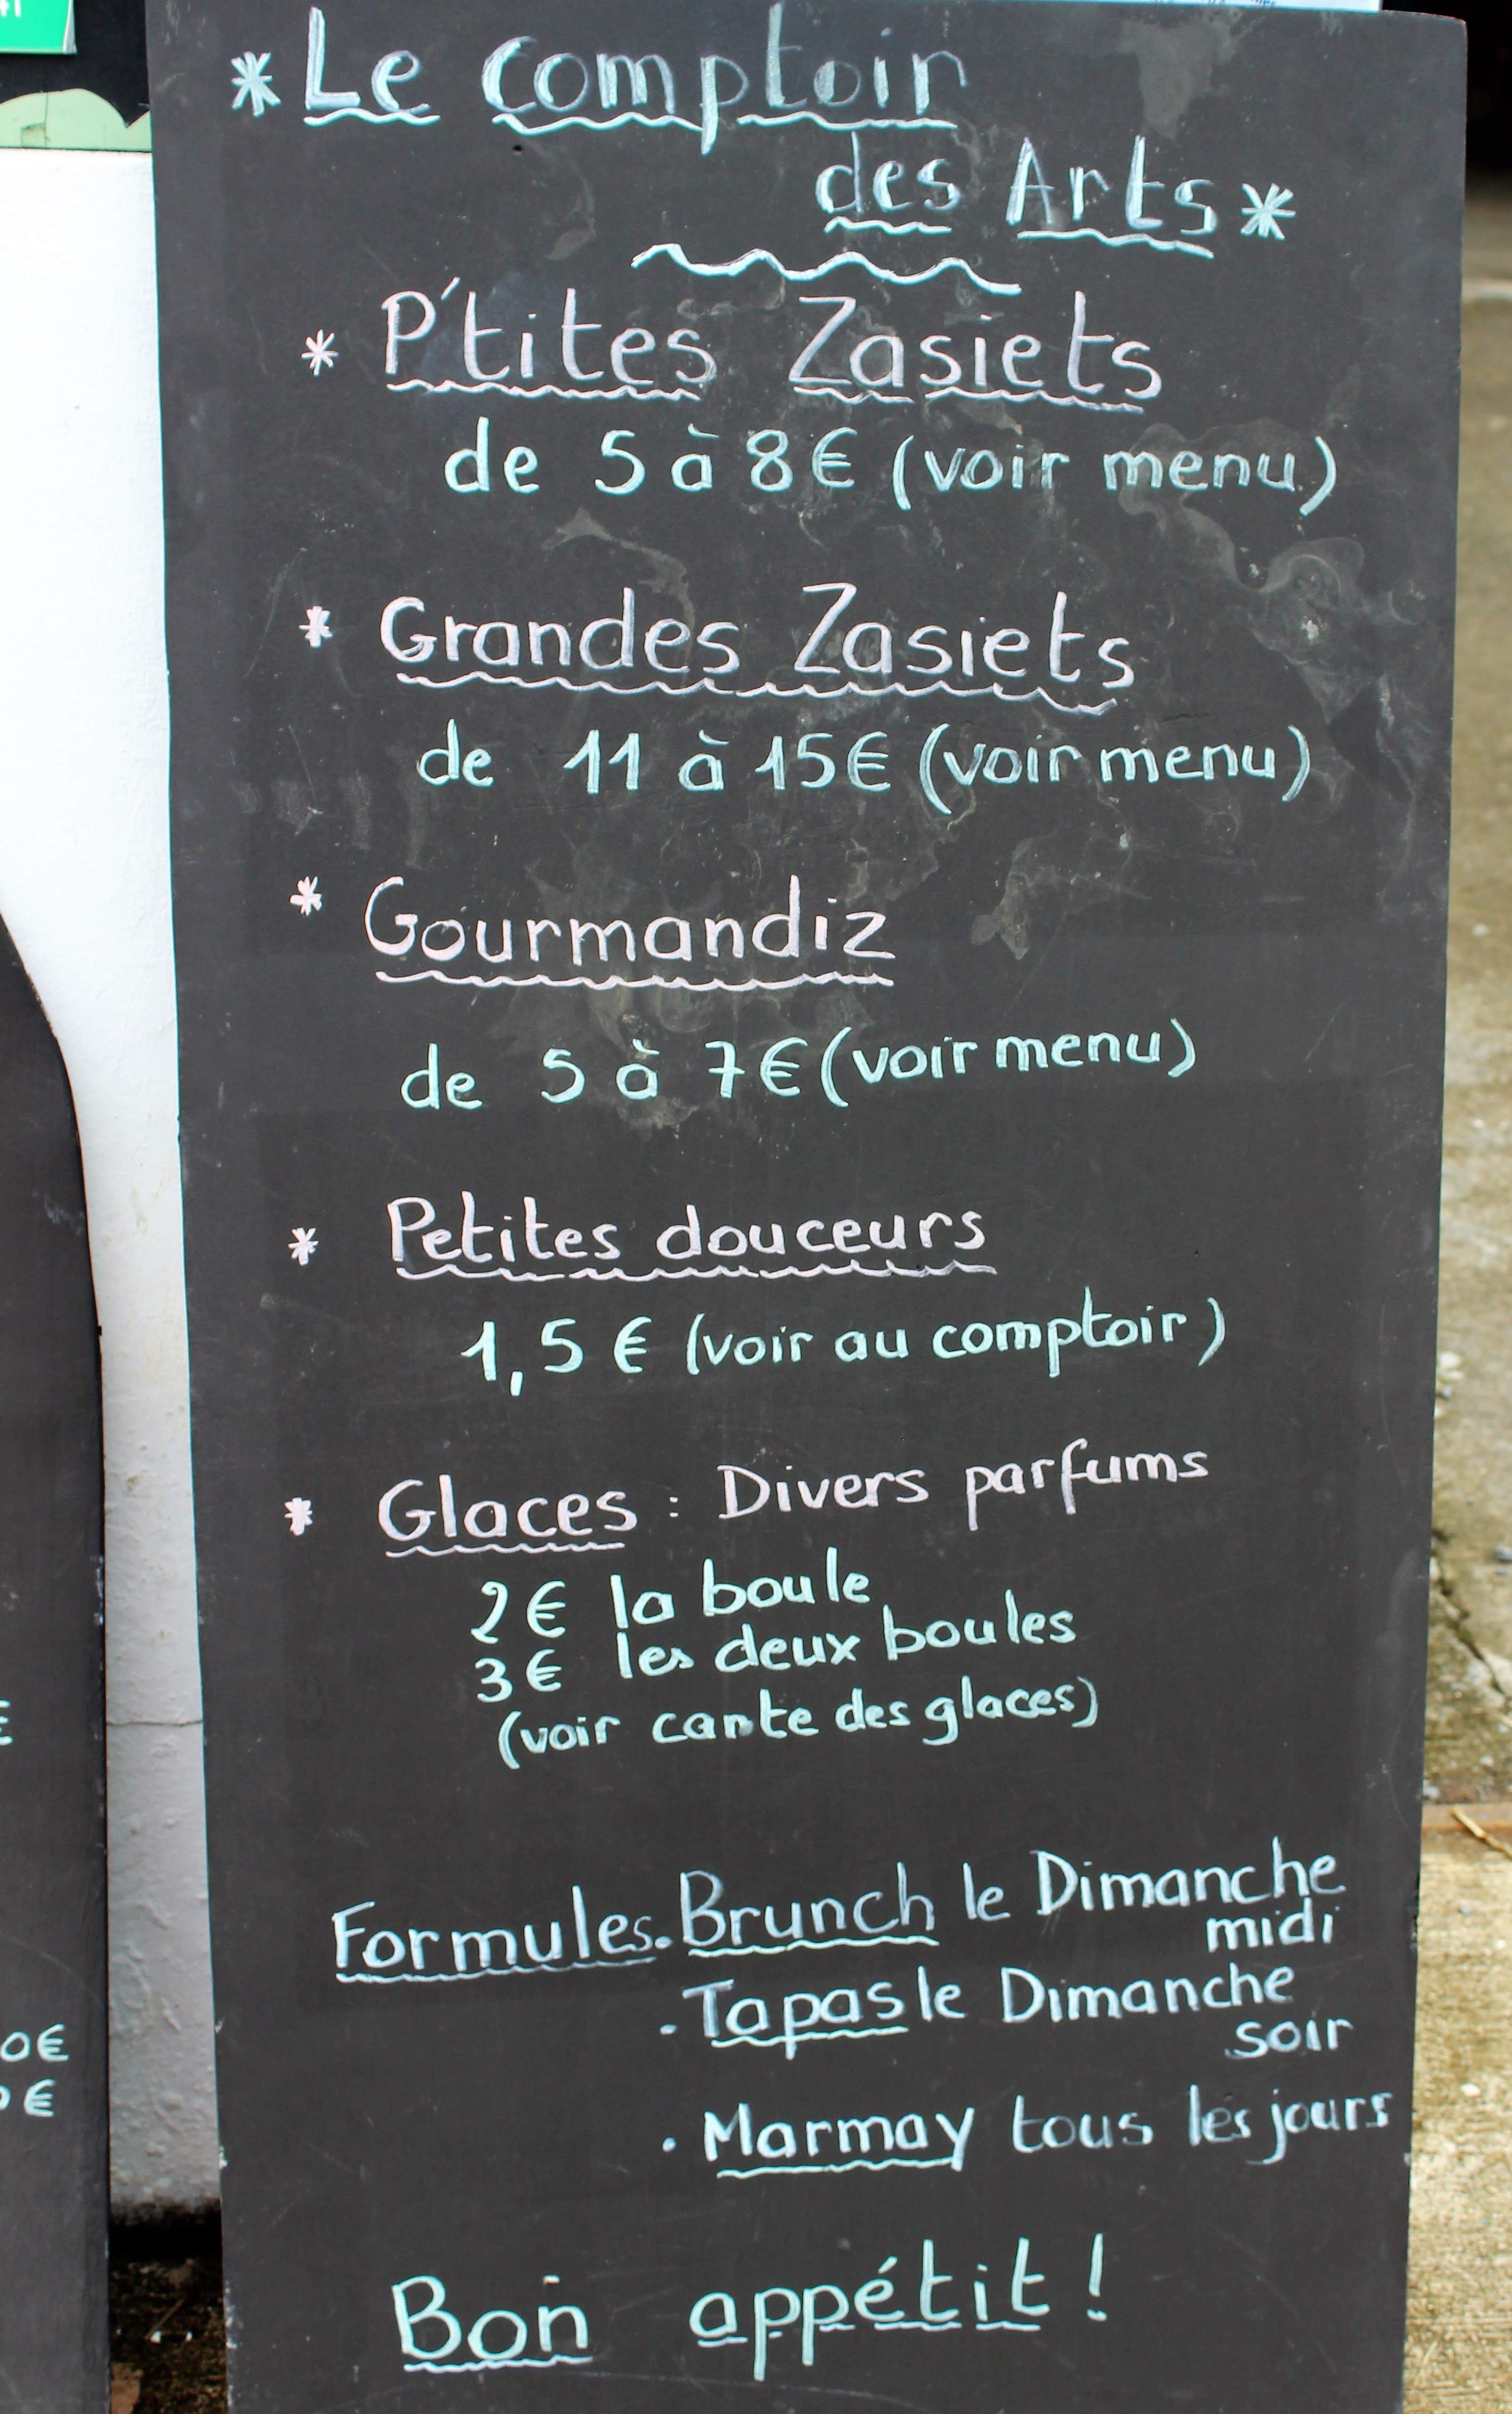 * Le Comptoir
des Arts *
* P'tites Zasiets
de 5 à 8€ (voir menu)
* Grandes Zasiets
de 11 à 15€ (voir menu)
* Gourmandiz
de 5 à 7€ (voir menu)
* Petites douceurs
1,5 € (voir au comptoir)
* Glaces : Divers parfums
2€ la boule
3€ les deux boules
(voir carte des glaces)
Formules. Brunch le Dimanche
midi
. Tapas le Dimanche
soir
. Marmay tous les jours
Bon appétit !